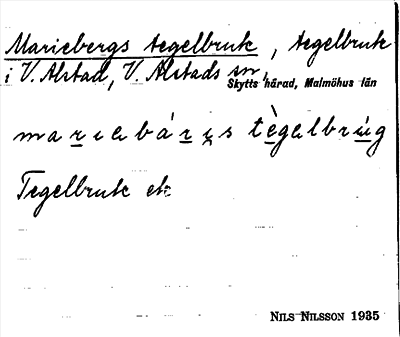 Mariebergs tegelbruk, tegelbruk
i V. Alstad, V. Alstads sn,
Skytts härad, Malmöhus län
Tegelbruk etc
NILS NILSSON 1935